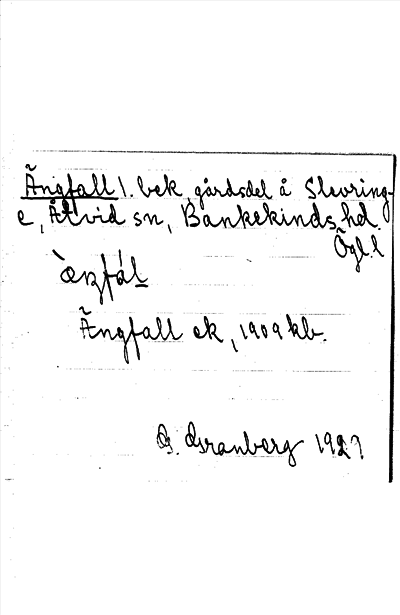 Ängfall l. bek, gårdsdel å Slevring-
e, Åtvid sn, Bankekinds hd.
Ögl. l
Ängfall ek, 1909 kb.
G. Granberg 1927